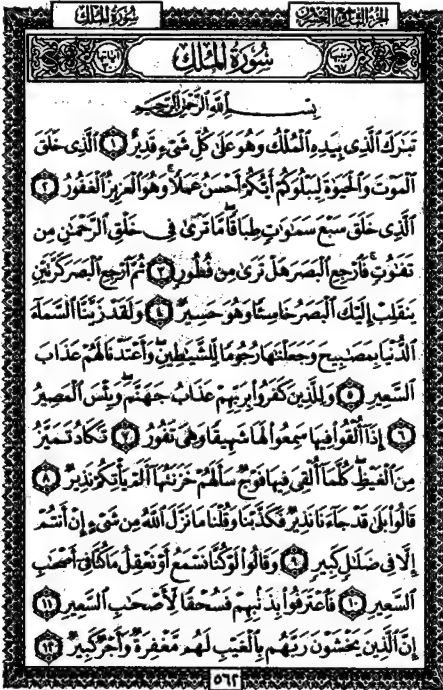 سُورَةُ المُلْكِ
الجُزْءُ التَّاسِعُ وَالعِشْرُونَ
سُورَةُ المُلْكِ
بِسْمِ اللَّهِ الرَّحْمَٰنِ الرَّحِيمِ
تَبَارَكَ الَّذِي بِيَدِهِ الْمُلْكُ وَهُوَ عَلَىٰ كُلِّ شَيْءٍ قَدِيرٌ ١ الَّذِي خَلَقَ
الْمَوْتَ وَالْحَيَوٰةَ لِيَبْلُوَكُمْ أَيُّكُمْ أَحْسَنُ عَمَلًا وَهُوَ الْعَزِيزُ الْغَفُورُ ٢
الَّذِي خَلَقَ سَبْعَ سَمَٰوَٰتٍ طِبَاقًا مَّا تَرَىٰ فِي خَلْقِ الرَّحْمَٰنِ مِن
تَفَٰوُتٍ فَارْجِعِ الْبَصَرَ هَلْ تَرَىٰ مِن فُطُورٍ ٣ ثُمَّ ارْجِعِ الْبَصَرَ كَرَّتَيْنِ
يَنقَلِبْ إِلَيْكَ الْبَصَرُ خَاسِئًا وَهُوَ حَسِيرٌ ٤ وَلَقَدْ زَيَّنَّا السَّمَاءَ
الدُّنْيَا بِمَصَٰبِيحَ وَجَعَلْنَٰهَا رُجُومًا لِّلشَّيَٰطِينِ وَأَعْتَدْنَا لَهُمْ عَذَابَ
السَّعِيرِ ٥ وَلِلَّذِينَ كَفَرُوا بِرَبِّهِمْ عَذَابُ جَهَنَّمَ وَبِئْسَ الْمَصِيرُ
٦ إِذَا أُلْقُوا فِيهَا سَمِعُوا لَهَا شَهِيقًا وَهِيَ تَفُورُ ٧ تَكَادُ تَمَيَّزُ
مِنَ الْغَيْظِ كُلَّمَا أُلْقِيَ فِيهَا فَوْجٌ سَأَلَهُمْ خَزَنَتُهَا أَلَمْ يَأْتِكُمْ نَذِيرٌ ٨
قَالُوا بَلَىٰ قَدْ جَاءَنَا نَذِيرٌ فَكَذَّبْنَا وَقُلْنَا مَا نَزَّلَ اللَّهُ مِن شَيْءٍ إِنْ أَنتُمْ
إِلَّا فِي ضَلَٰلٍ كَبِيرٍ ٩ وَقَالُوا لَوْ كُنَّا نَسْمَعُ أَوْ نَعْقِلُ مَا كُنَّا فِي أَصْحَٰبِ
السَّعِيرِ ١٠ فَاعْتَرَفُوا بِذَنبِهِمْ فَسُحْقًا لِّأَصْحَٰبِ السَّعِيرِ ١١
إِنَّ الَّذِينَ يَخْشَوْنَ رَبَّهُم بِالْغَيْبِ لَهُم مَّغْفِرَةٌ وَأَجْرٌ كَبِيرٌ ١٢
٥٦٢